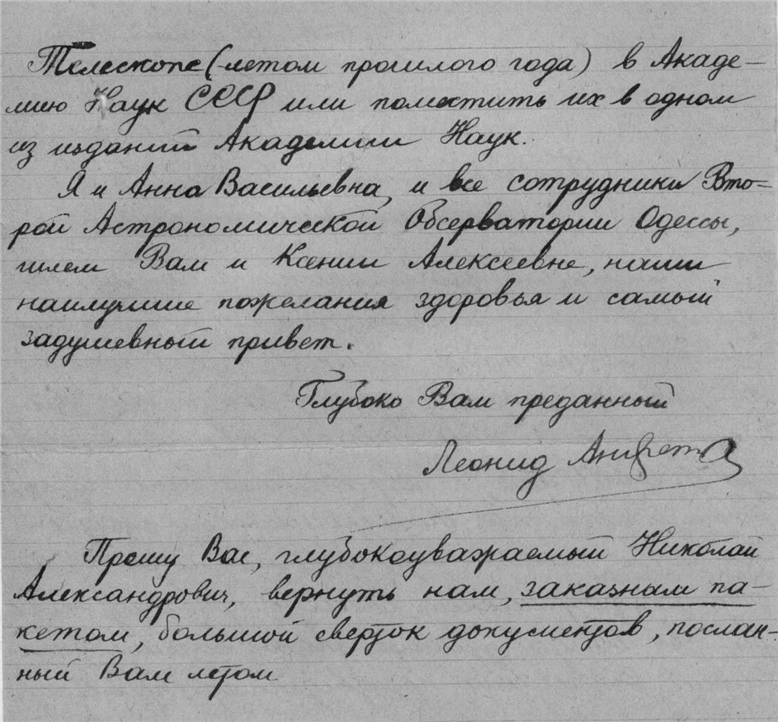 Телескопе (летом прошлого года) в Акаде-
мию Наук СССР или поместить их в одном
из изданий Академии Наук.
Я и Анна Васильевна, и все сотрудники Вто-
рой Астрономической Обсерватории Одессы,
шлем Вам и Ксении Алексеевне, наши
наилучшие пожелания здоровья и самый
задушевный привет.
Глубоко Вам преданный
Леонид
Прошу Вас, глубокоуважаемый Николай
Александрович, вернуть нам, заказным па-
кетом, большой сверток документов, послан-
ный Вам летом